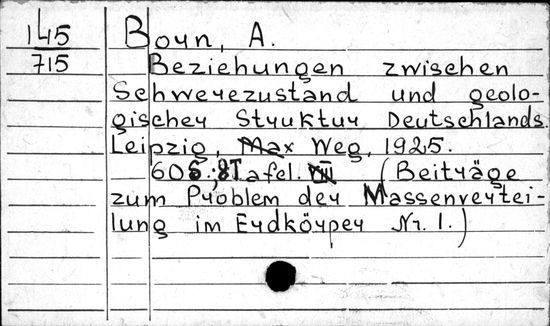 145 Born, A.
715 Beziehungen zwischen
Schwerezustand und geolo-
gischer Struktur Deutschlands.
Leipzig, Max Weg, 1925.
60S.; 8 Tafel. VIII (Beiträge
zum Problem der Massenvertei-
lung im Erdkörper Nr. 1.)